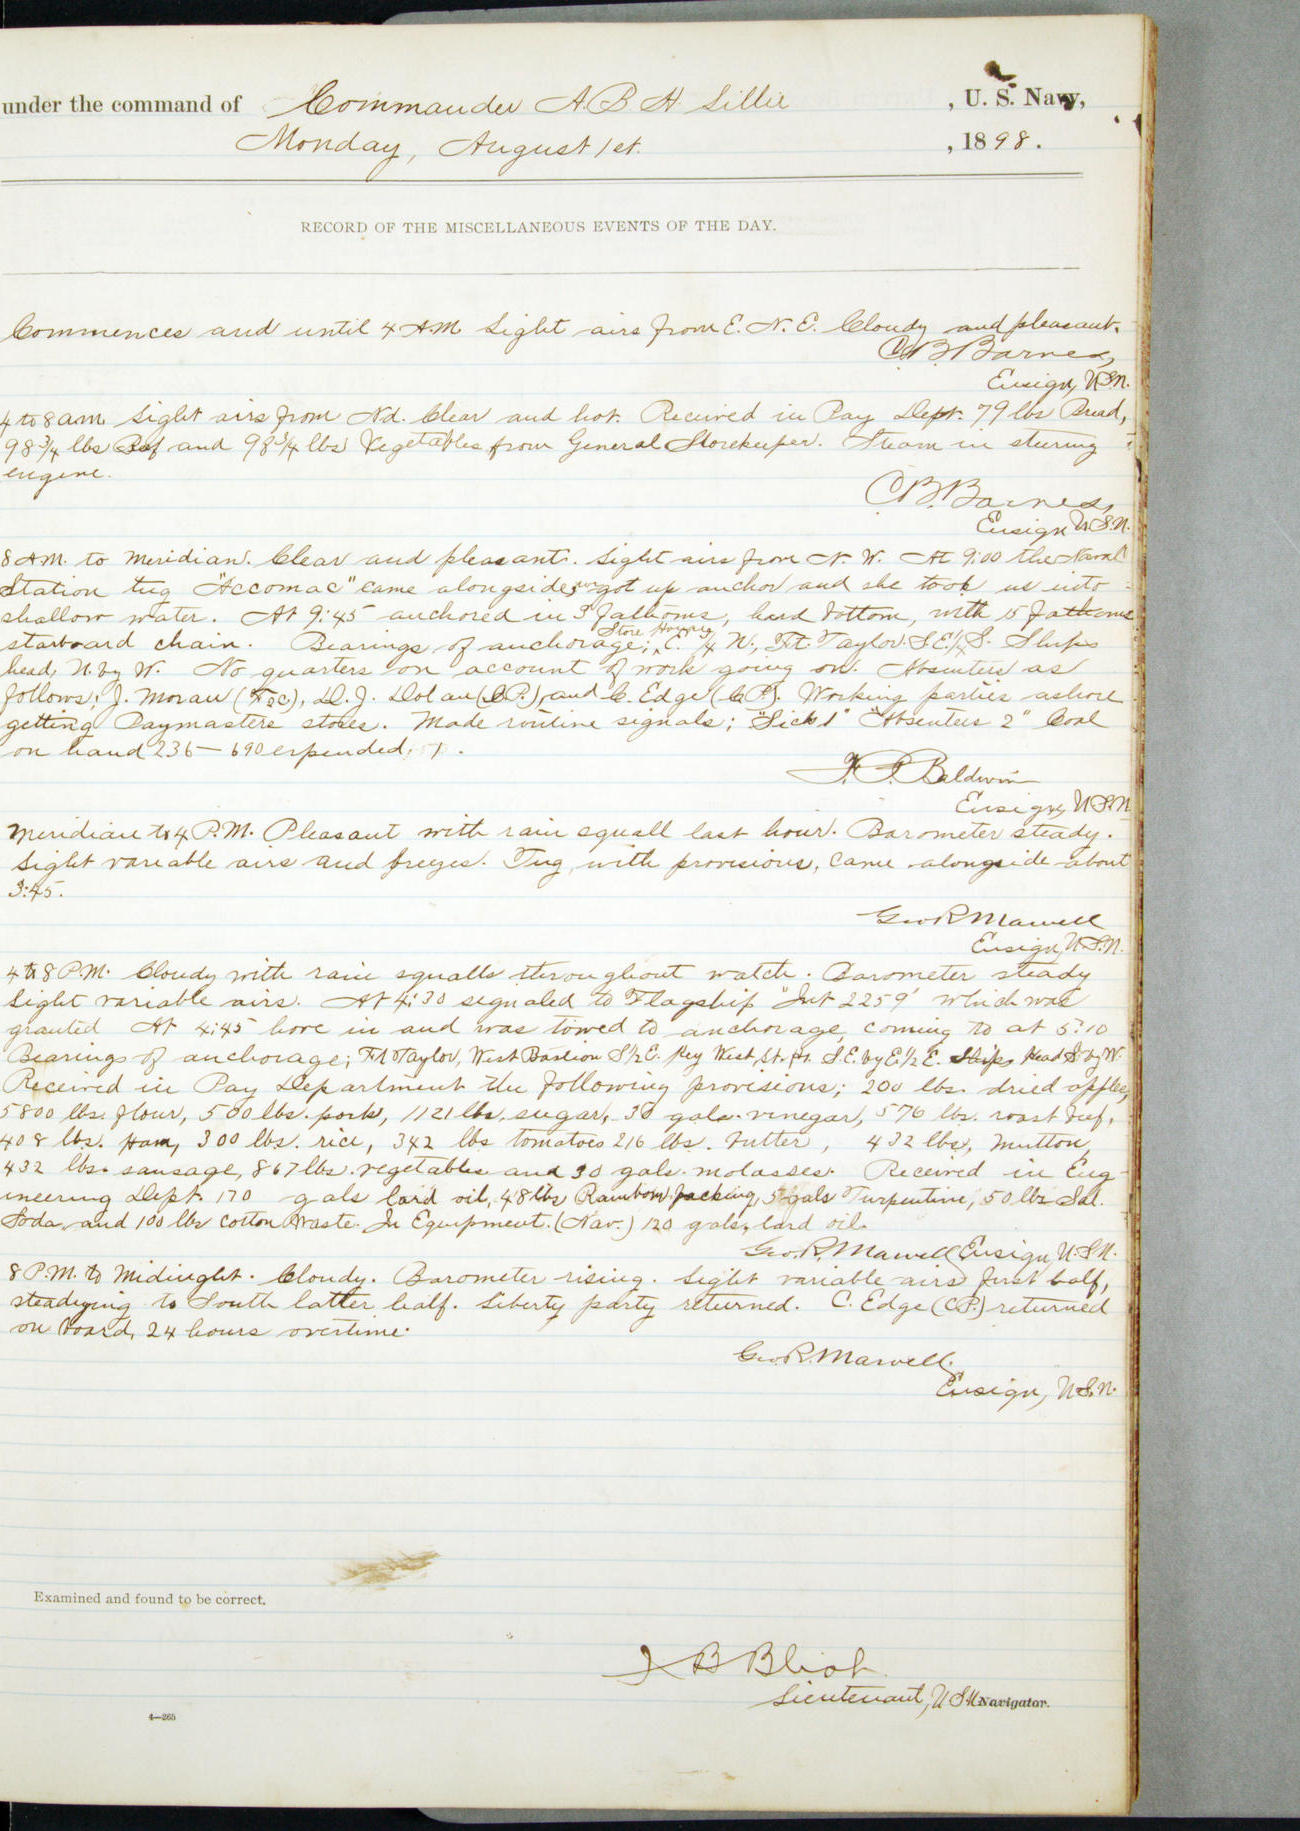 under the command of Commander A. B. H. Lillie , U. S. Navy,
Monday, August 1st. , 1898.
RECORD OF THE MISCELLANEOUS EVENTS OF THE DAY.
Commences and until 4 AM Light airs from E. N. E. Cloudy and pleasant.
C B Barnes,
Ensign, U.S.N.
4 to 8 am Light airs from Nd. Clear and hot. Received in Pay Dept. 79 lbs Bread,
98 3/4 lbs Beef and 98 3/4 lbs Vegetables from General Storekeeper. Steam in steering
engine.
C B. Barnes,
Ensign U.S.N.
8 AM. to Meridian. Clear and pleasant. Light airs from N. W. At 9:00 the Naval
Station tug "Accomac" came alongside, we got up anchor and she took us into
shallow water. At 9:45 anchored in 3 fathoms, hard bottom, with 15 fathoms
starboard chain. Bearings of anchorage; Store House, E. 1/4 N., Ft. Taylor S.E. 1/4 S. Ships
head, N. by W. No quarters on account of work going on. Absentees as
follows; J. Moran (F2c), D. J. Dolan (C.P.), and C. Edge (C.P.). Working parties ashore
getting Paymasters stores. Made routine signals; "Sick 1" "Absentees 2" Coal
on hand 236 — 690 expended,
Ensign, U.S.N
Meridian to 4 P.M. Pleasant with rain squall last hour. Barometer steady.
Light variable airs and breezes. Tug, with provisions, came alongside about
3:45.
Geo R Marvell
Ensign, U.S.N.
4 to 8 P.M. Cloudy with rain squalls throughout watch. Barometer steady
Light variable airs. At 4:30 signaled to Flagship "Int 2259" which was
granted At 4:45 hove in and was towed to anchorage, coming to at 5:10
Bearings of anchorage; Ft Taylor, West Bastion S 1/2 E. Key West, Lt. Hs. S.E. by E 1/2 E. Ships Head S by W.
Received in Pay Department the following provisions; 200 lbs. dried apples,
5800 lbs. flour, 500 lbs. pork, 1121 lbs. sugar, 30 gals. vinegar, 576 lbs. roast beef,
408 lbs. Ham, 300 lbs. rice, 342 lbs tomatoes 216 lbs. butter, 432 lbs, mutton,
432 lbs. sausage, 867 lbs. vegetables and 30 gals. molasses. Received in Eng-
ineering Dept. 170 gals lard oil, 48 lbs Rainbow packing, 5 gals Turpentine, 50 lbs Sal.
Soda, and 100 lbs cotton waste. In Equipment. (Nav.) 120 gals, lard oil.
Geo. R. Marvell Ensign U.S.N.
8 P.M. to Midnight. Cloudy. Barometer rising. Light variable airs first half,
steadying to South latter half. Liberty party returned. C. Edge (C.P.) returned
on board, 24 hours overtime.
Geo. R. Marvell,
Ensign, U.S.N.
Examined and found to be correct.
Lieutenant, U S N Navigator.
4—265